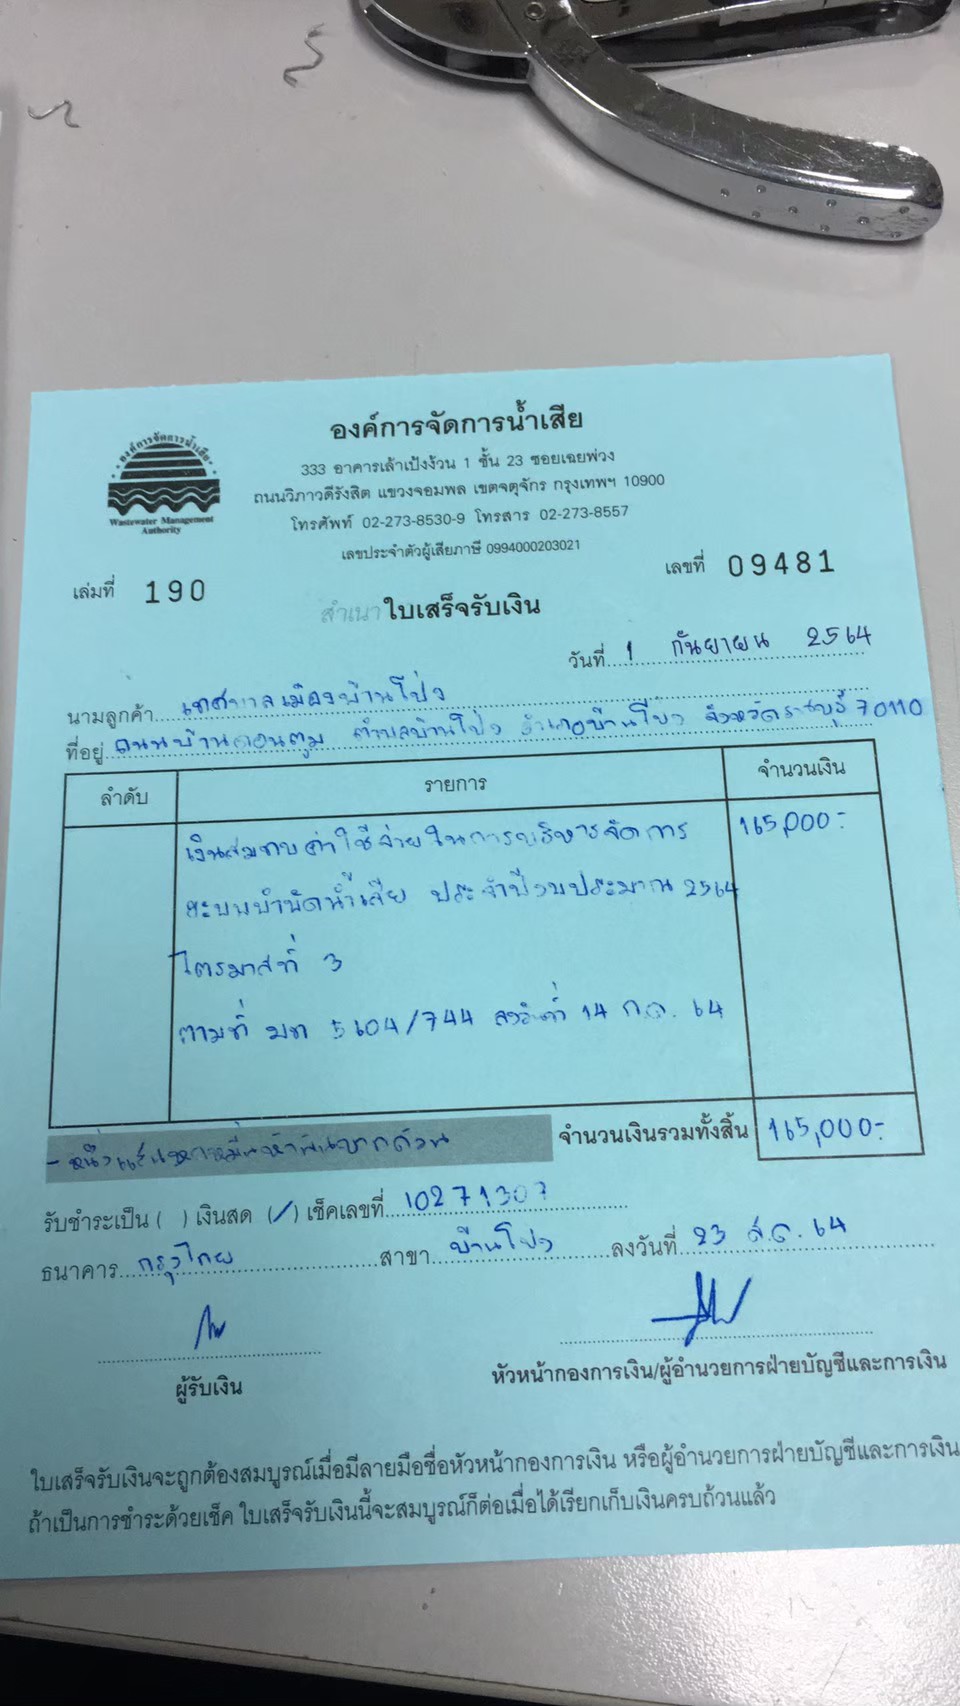 องค์การจัดการน้ำเสีย
333 อาคารเล้าเป้งง้วน 1 ชั้น 23 ซอยเฉยพ่วง
ถนนวิภาวดีรังสิต แขวงจอมพล เขตจตุจักร กรุงเทพฯ 10900
โทรศัพท์ 02-273-8530-9 โทรสาร 02-273-8557
เลขประจำตัวผู้เสียภาษี 0994000203021
องค์การจัดการน้ำเสีย
Wastewater Management
Authority
เล่มที่ 190
เลขที่ 09481
สำเนา ใบเสร็จรับเงิน
วันที่ 1 กันยายน 2564
นามลูกค้า เทศบาลเมืองบ้านโป่ง
ที่อยู่ ถนนบ้านดอนตูม ตำบลบ้านโป่ง อำเภอบ้านโป่ง จังหวัดราชบุรี 70110
ลำดับ รายการ จำนวนเงิน
เงินสมทบค่าใช้จ่ายในการบริหารจัดการ 165,000.-
ระบบบำบัดน้ำเสีย ประจำปีงบประมาณ 2564
ไตรมาสที่ 3
ตามที่ มท 5604/744 ลงวันที่ 14 ก.ค. 64
- หนึ่งแสนหกหมื่นห้าพันบาทถ้วน
จำนวนเงินรวมทั้งสิ้น 165,000.-
รับชำระเป็น ( ) เงินสด (/) เช็คเลขที่ 10271307
ธนาคาร กรุงไทย สาขา บ้านโป่ง ลงวันที่ 23 ส.ค. 64
ผู้รับเงิน
หัวหน้ากองการเงิน/ผู้อำนวยการฝ่ายบัญชีและการเงิน
ใบเสร็จรับเงินจะถูกต้องสมบูรณ์เมื่อมีลายมือชื่อหัวหน้ากองการเงิน หรือผู้อำนวยการฝ่ายบัญชีและการเงิน
ถ้าเป็นการชำระด้วยเช็ค ใบเสร็จรับเงินนี้จะสมบูรณ์ก็ต่อเมื่อได้เรียกเก็บเงินครบถ้วนแล้ว